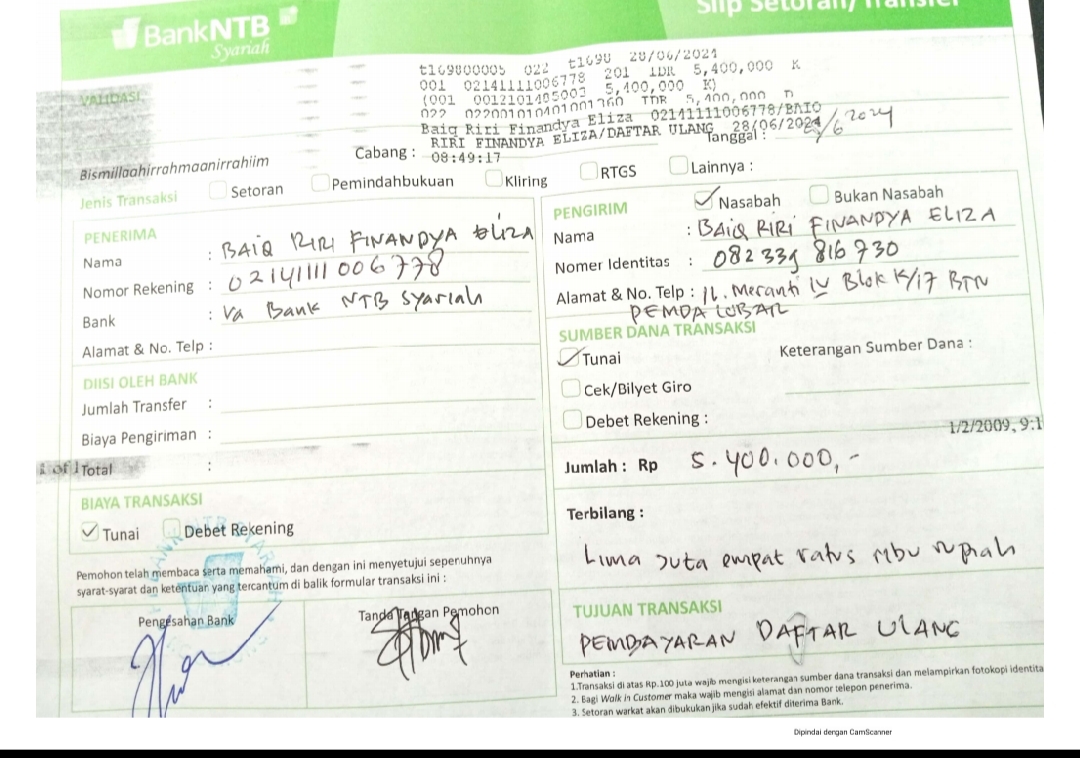 BankNTB
Syariah
Slip Setoran/Transfer
VALIDASI
t169800005 022 t1698 28/06/2024
001 02141111006778 201 IDR 5,400,000 K
(001 0012101405003 5,400,000 K)
022 022001010401001760 IDR 5,400,000 D
Baiq Riri Finandya Eliza 02141111006778/BAIQ
RIRI FINANDYA ELIZA/DAFTAR ULANG 28/06/2024
08:49:17
Tanggal : /6 2024
Bismillaahirrahmaanirrahiim
Cabang :
Jenis Transaksi Setoran Pemindahbukuan Kliring RTGS Lainnya :
PENERIMA
Nama : BAIQ RIRI FINANDYA ELIZA
Nomor Rekening : 02141111006778
Bank : Va Bank NTB Syariah
Alamat & No. Telp :
DIISI OLEH BANK
Jumlah Transfer :
Biaya Pengiriman :
1 of 1
Total :
BIAYA TRANSAKSI
Tunai Debet Rekening
Pemohon telah membaca serta memahami, dan dengan ini menyetujui sepenuhnya
syarat-syarat dan ketentuan yang tercantum di balik formular transaksi ini :
Pengesahan Bank
Tanda Tangan Pemohon
PENGIRIM Nasabah Bukan Nasabah
Nama : BAIQ RIRI FINANDYA ELIZA
Nomer Identitas : 082339 816730
Alamat & No. Telp : Jl. Meranti IV Blok K/17 BTN
PEMDA LOBAR
SUMBER DANA TRANSAKSI
Tunai
Keterangan Sumber Dana :
Cek/Bilyet Giro
Debet Rekening :
1/2/2009, 9:1
Jumlah : Rp 5.400.000,-
Terbilang :
Lima Juta empat ratus ribu rupiah
TUJUAN TRANSAKSI
PEMBAYARAN DAFTAR ULANG
Perhatian :
1.Transaksi di atas Rp.100 juta wajib mengisi keterangan sumber dana transaksi dan melampirkan fotokopi identita
2. Bagi Walk in Customer maka wajib mengisi alamat dan nomor telepon penerima.
3. Setoran warkat akan dibukukan jika sudah efektif diterima Bank.
Dipindai dengan CamScanner